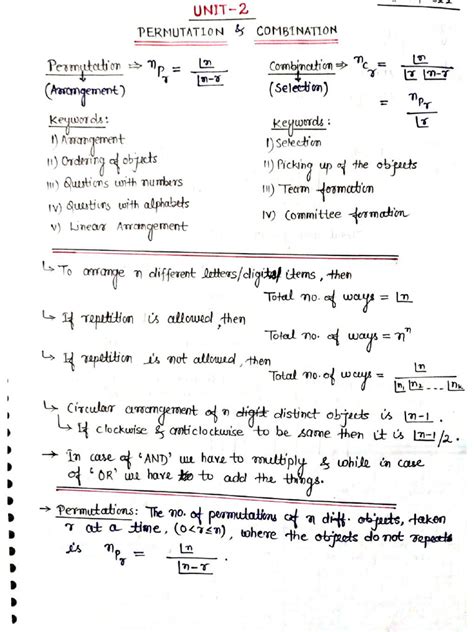 UNIT-2
PERMUTATION & COMBINATION
Permutation ⇒ nPr = ⌊n / ⌊n-r
(Arrangement)
Keywords:
I) Arrangement
II) Ordering of objects
III) Questions with numbers
IV) Questions with alphabets
V) Linear Arrangement
Combination ⇒ nCr = ⌊n / ⌊r ⌊n-r
(Selection)
= nPr / ⌊r
Keywords:
I) Selection
II) Picking up of the objects
III) Team formation
IV) Committee formation
↳ To arrange n different letters/digits/items, then
Total no. of ways = ⌊n
↳ If repetition is allowed, then
Total no. of ways = nⁿ
↳ If repetition is not allowed, then
Total no. of ways = ⌊n / ⌊n₁ ⌊n₂ --- ⌊nₖ
↳ Circular arrangement of n digit distinct objects is ⌊n-1.
↳ If clockwise & anticlockwise to be same then it is ⌊n-1/2.
→ In case of 'AND' we have to multiply & while in case
of 'OR' we have to to add the things.
→ Permutations: The no. of permutations of n diff. objects, taken
r at a time, (0<r≤n), where the objects do not repeats
is nPr = ⌊n / ⌊n-r .